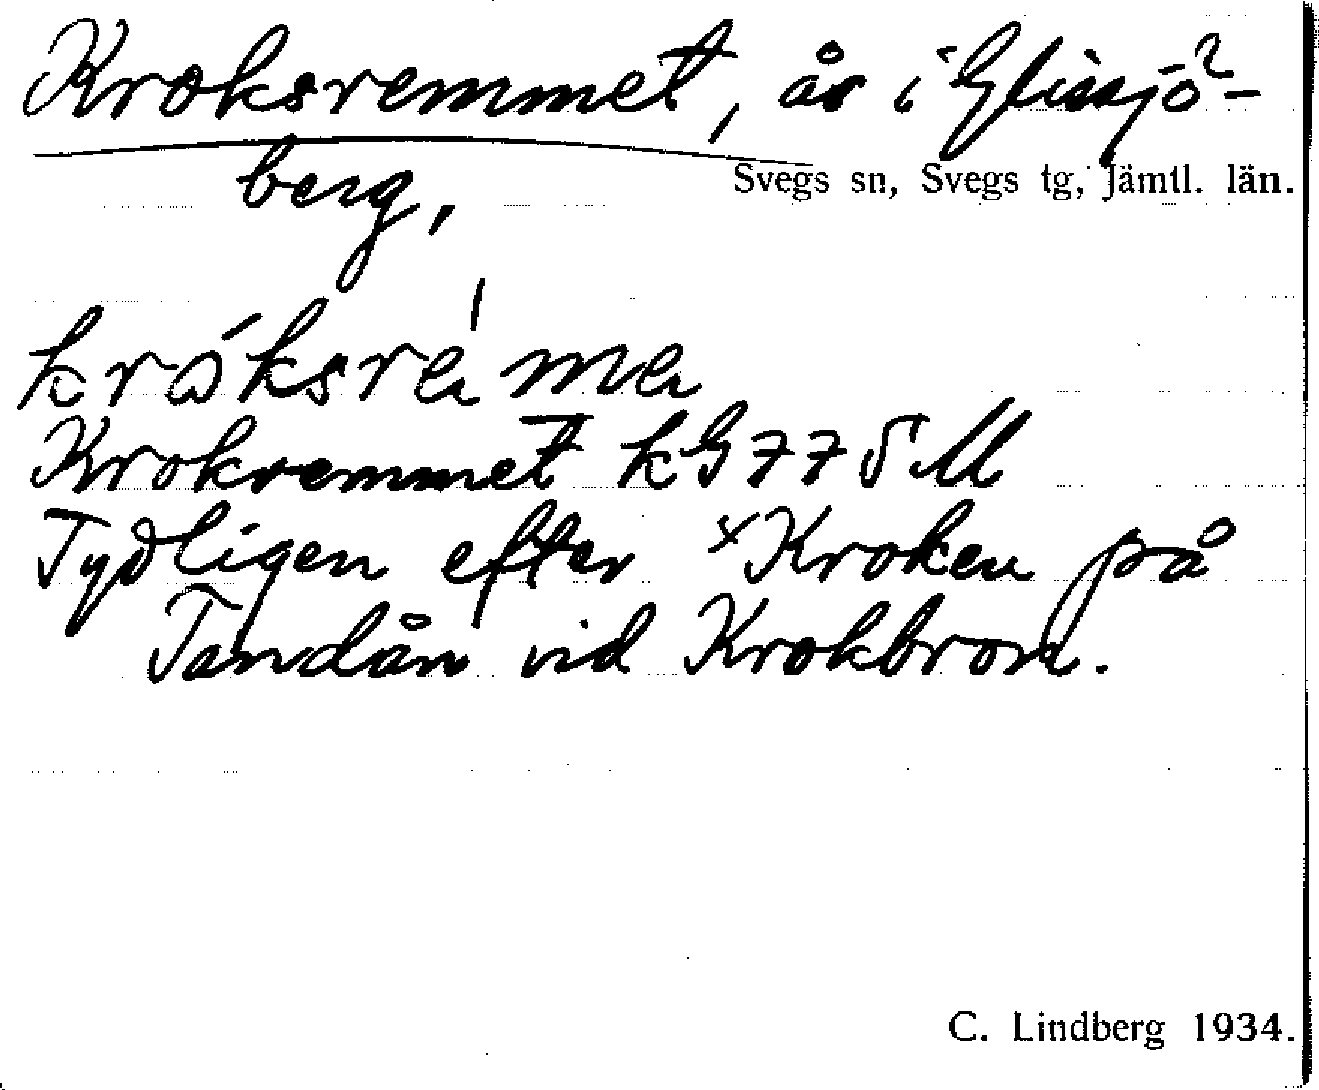 Kroksremmet, ås i Glissjö-
berg,
Svegs sn, Svegs tg, Jämtl. län.
króksrema
Krokremmet kG 77 M
Tydligen efter *Kroken på
Tandån vid Krokbron.
C. Lindberg 1934.